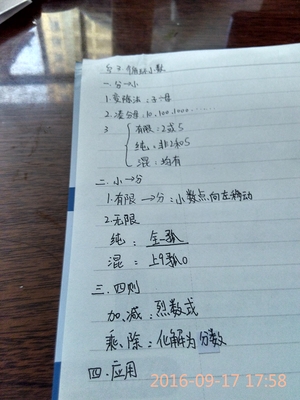 分子 循环小数
一.分→小
1.变除法:子÷母
2.凑分母:10,100,1000……
3 有限:2或5
纯:非2和5
混:均有
二.小→分
1.有限→分:小数点向左移动
2.无限
纯:
混:上9 0
三.四则
加、减:烈数式
乘、除:化解为分数
四.应用
2016-09-17 17:58